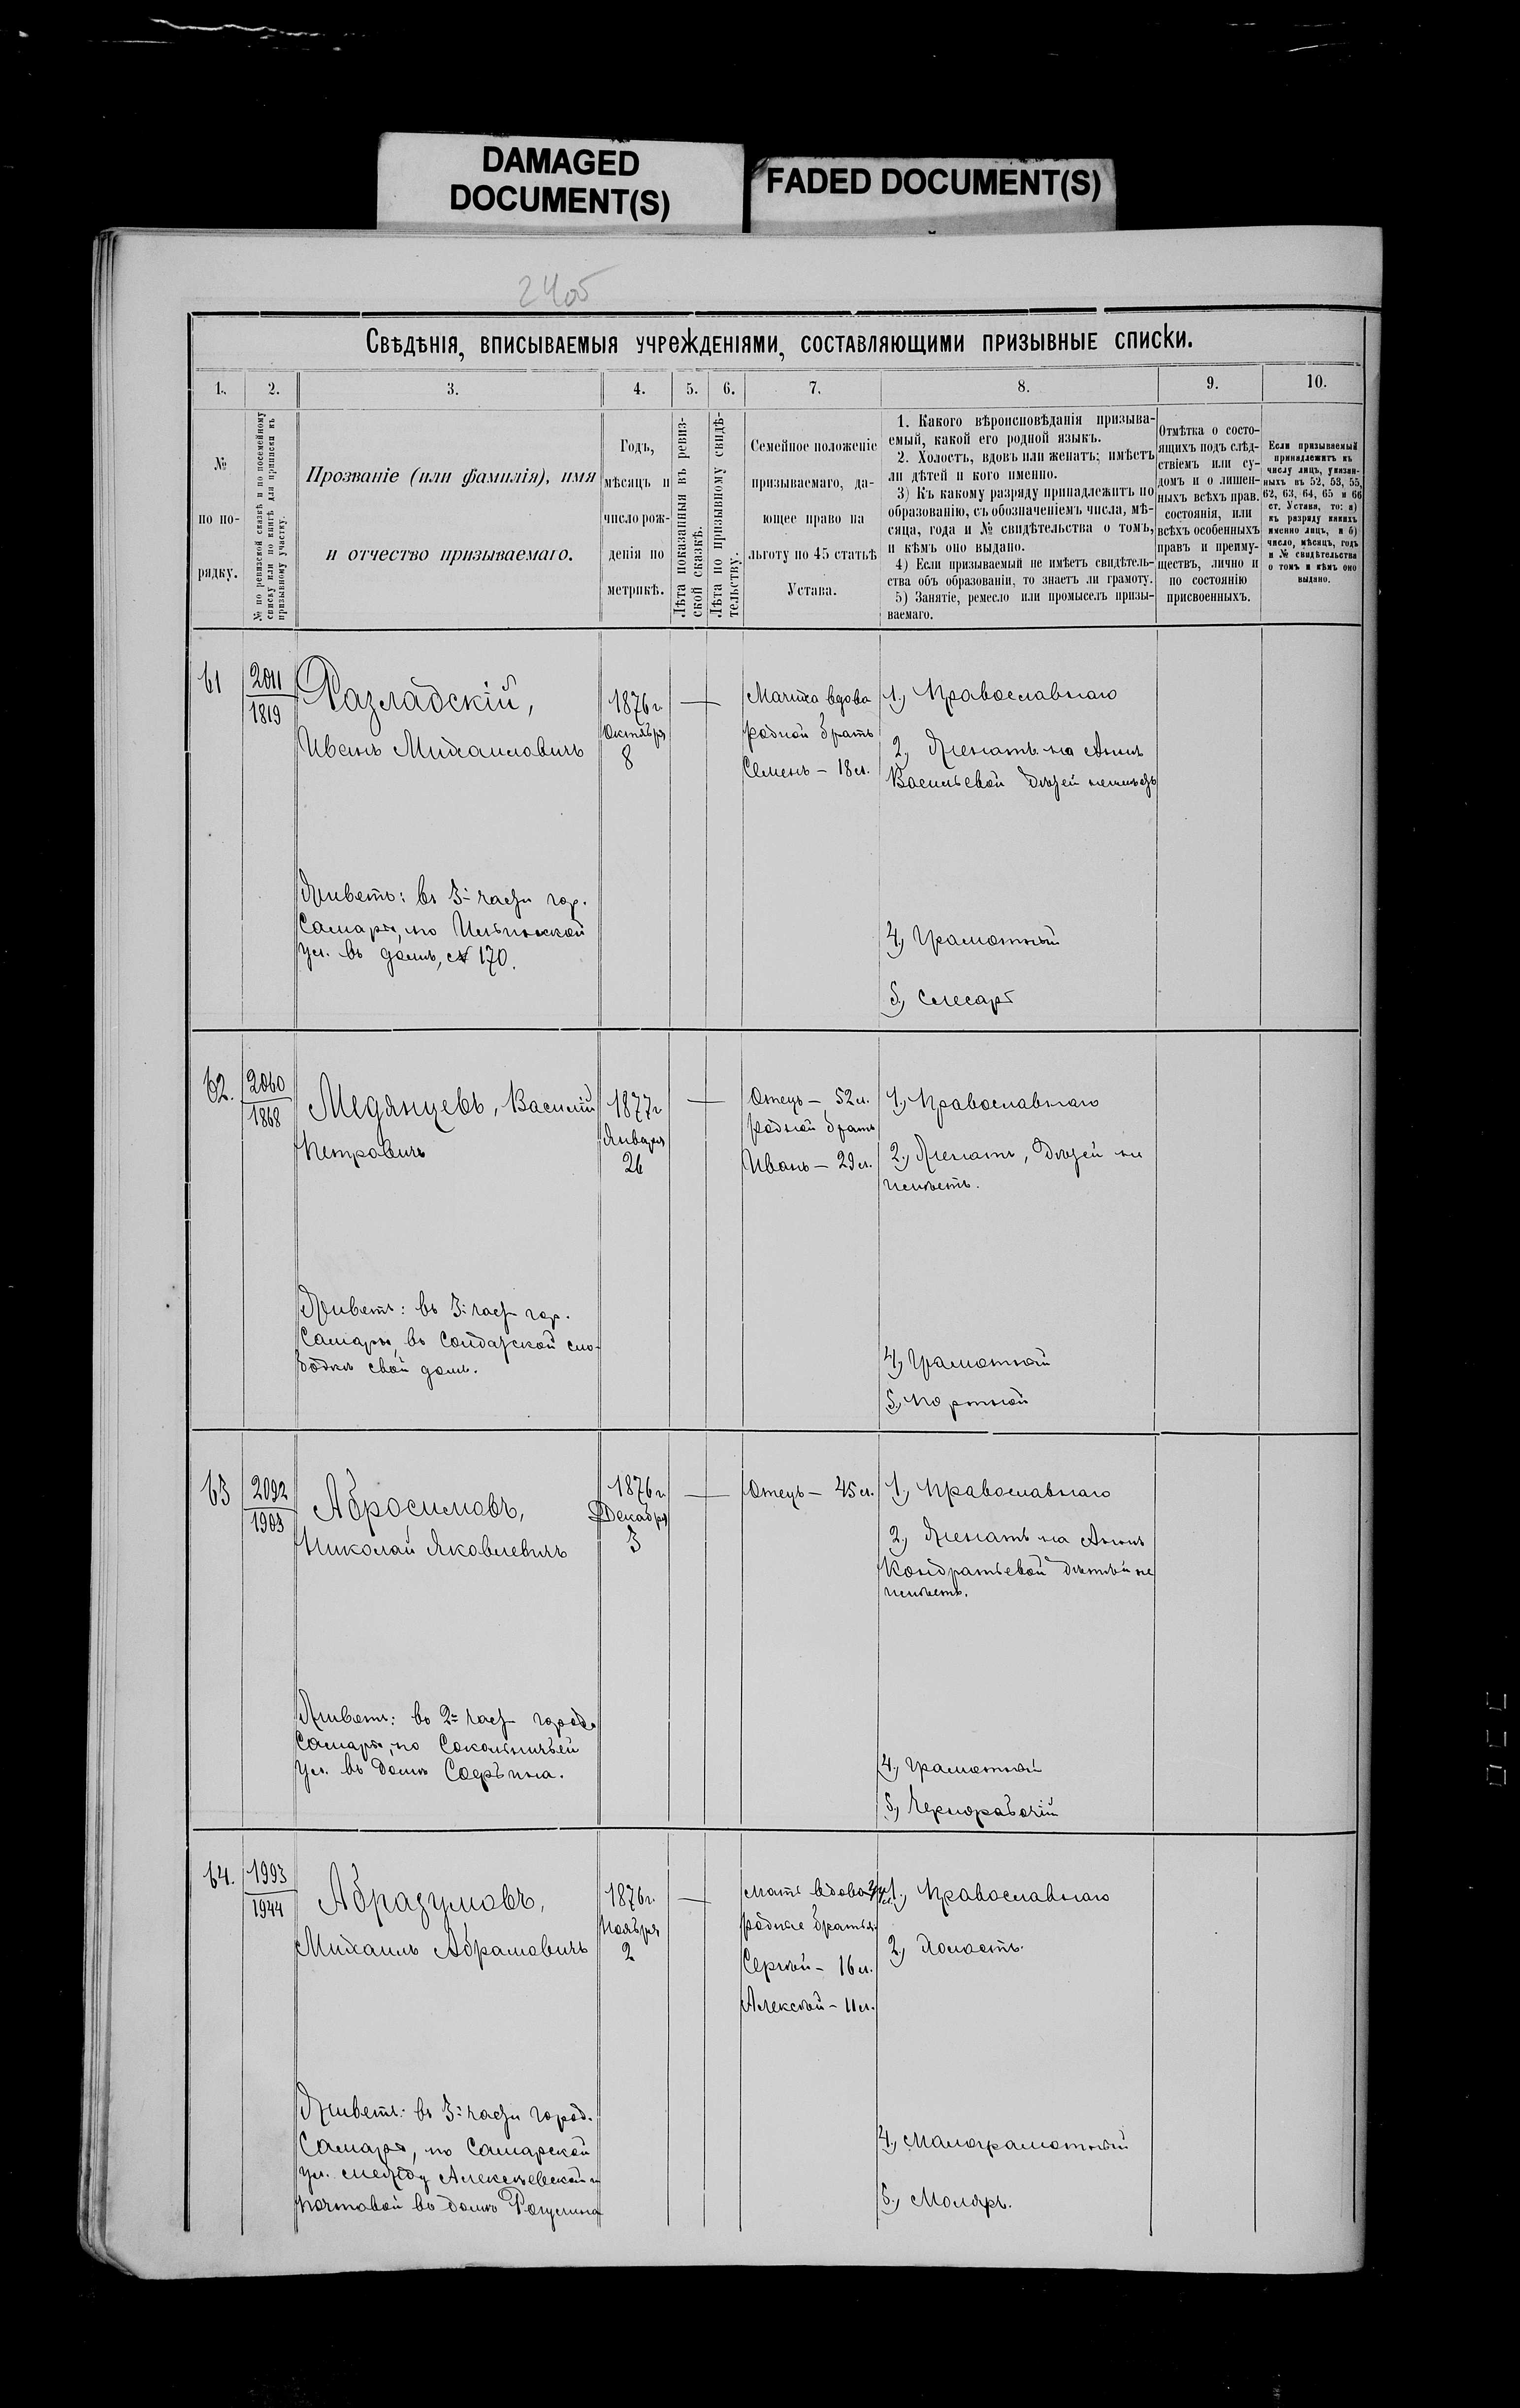 DAMAGED
DOCUMENT(S)
FADED DOCUMENT(S)
2405
Свѣдѣнія, вписываемыя учрежденіями, составляющими призывные списки.
1. 2. 3. 4. 5. 6. 7. 8. 9. 10.
№
по по-
рядку.
№ по ревизской сказкѣ и по посемейному
списку или по книгѣ для приписки къ
призывному участку.
Прозваніе (или фамилія), имя
и отчество призываемаго.
Годъ,
мѣсяцъ и
число рож-
денія по
метрикѣ.
Лѣта показанныя въ ревиз-
ской сказкѣ.
Лѣта по призывному свидѣ-
тельству.
Семейное положеніе
призываемаго, да-
ющее право на
льготу по 45 статьѣ
Устава.
1. Какого вѣроисповѣданія призыва-
емый, какой его родной языкъ.
2. Холостъ, вдовъ или женатъ; имѣетъ
ли дѣтей и кого именно.
3) Къ какому разряду принадлежитъ по
образованію, съ обозначеніемъ числа, мѣ-
сяца, года и № свидѣтельства о томъ,
и кѣмъ оно выдано.
4) Если призываемый не имѣетъ свидѣтель-
ства объ образованіи, то знаетъ ли грамоту.
5) Занятіе, ремесло или промыселъ призы-
ваемаго.
Отмѣтка о состо-
ящихъ подъ слѣд-
ствіемъ или су-
домъ и о лишен-
ныхъ всѣхъ прав.
состоянія, или
всѣхъ особенныхъ
правъ и преиму-
ществъ, лично и
по состоянію
присвоенныхъ.
Если призываемый
принадлежитъ къ
числу лицъ, указан-
ныхъ въ 52, 53, 55,
62, 63, 64, 65 и 66
ст. Устава, то: а)
къ разряду какихъ
именно лицъ, и б)
число, мѣсяцъ, годъ
и № свидѣтельства
о томъ и кѣмъ оно
выдано.
61
2011
1819
Разладскій,
Иванъ Михаиловичъ
Живетъ: въ 3й части гор.
Самары, по Ильинской
ул. въ домѣ, № 170.
1876 г
Октября
8
Мачиха вдова
родной братъ
Семенъ – 18 л.
1., Православнаго
2., Женатъ на Аннѣ
Васильевой дѣтей неимѣетъ
4., Грамотный
5., Слесарь
62.
2060
1868
Медянцевъ, Василій
Петровичъ
Живетъ: въ 3й част гор.
Самары, въ Солдатской сло-
бодкѣ свой домъ.
1877 г
Января
26
Отецъ – 52 л.
родной братъ
Иванъ – 29 л.
1., Православнаго
2., Женатъ, дѣтей не
имѣетъ.
4., Грамотный
5., Портной
63
2092
1903
Абросимовъ,
Николай Яковлевичъ
Живетъ: во 2й част город.
Самары, по Сокольничьей
ул. въ домѣ
1876 г.
Декабря
3
Отецъ – 45 л.
1., Православнаго
2., Женатъ на Аннѣ
Кондратьевой дѣтей не
имѣетъ.
4., Грамотный
5., Чернорабочій
64.
1993
1944
Абразумовъ,
Михаилъ Абрамовичъ
Живетъ: въ 3й части город.
Самары, по Самарской
ул. между Алексѣевской и
Почтовой въ домѣ
1876 г.
Ноября
2
Мать вдова
родные братья:
Сергѣй – 16 л.
Алексѣй – 11 л.
1., Православнаго
2., Холостъ.
4., Малограмотный
5., Моляръ.